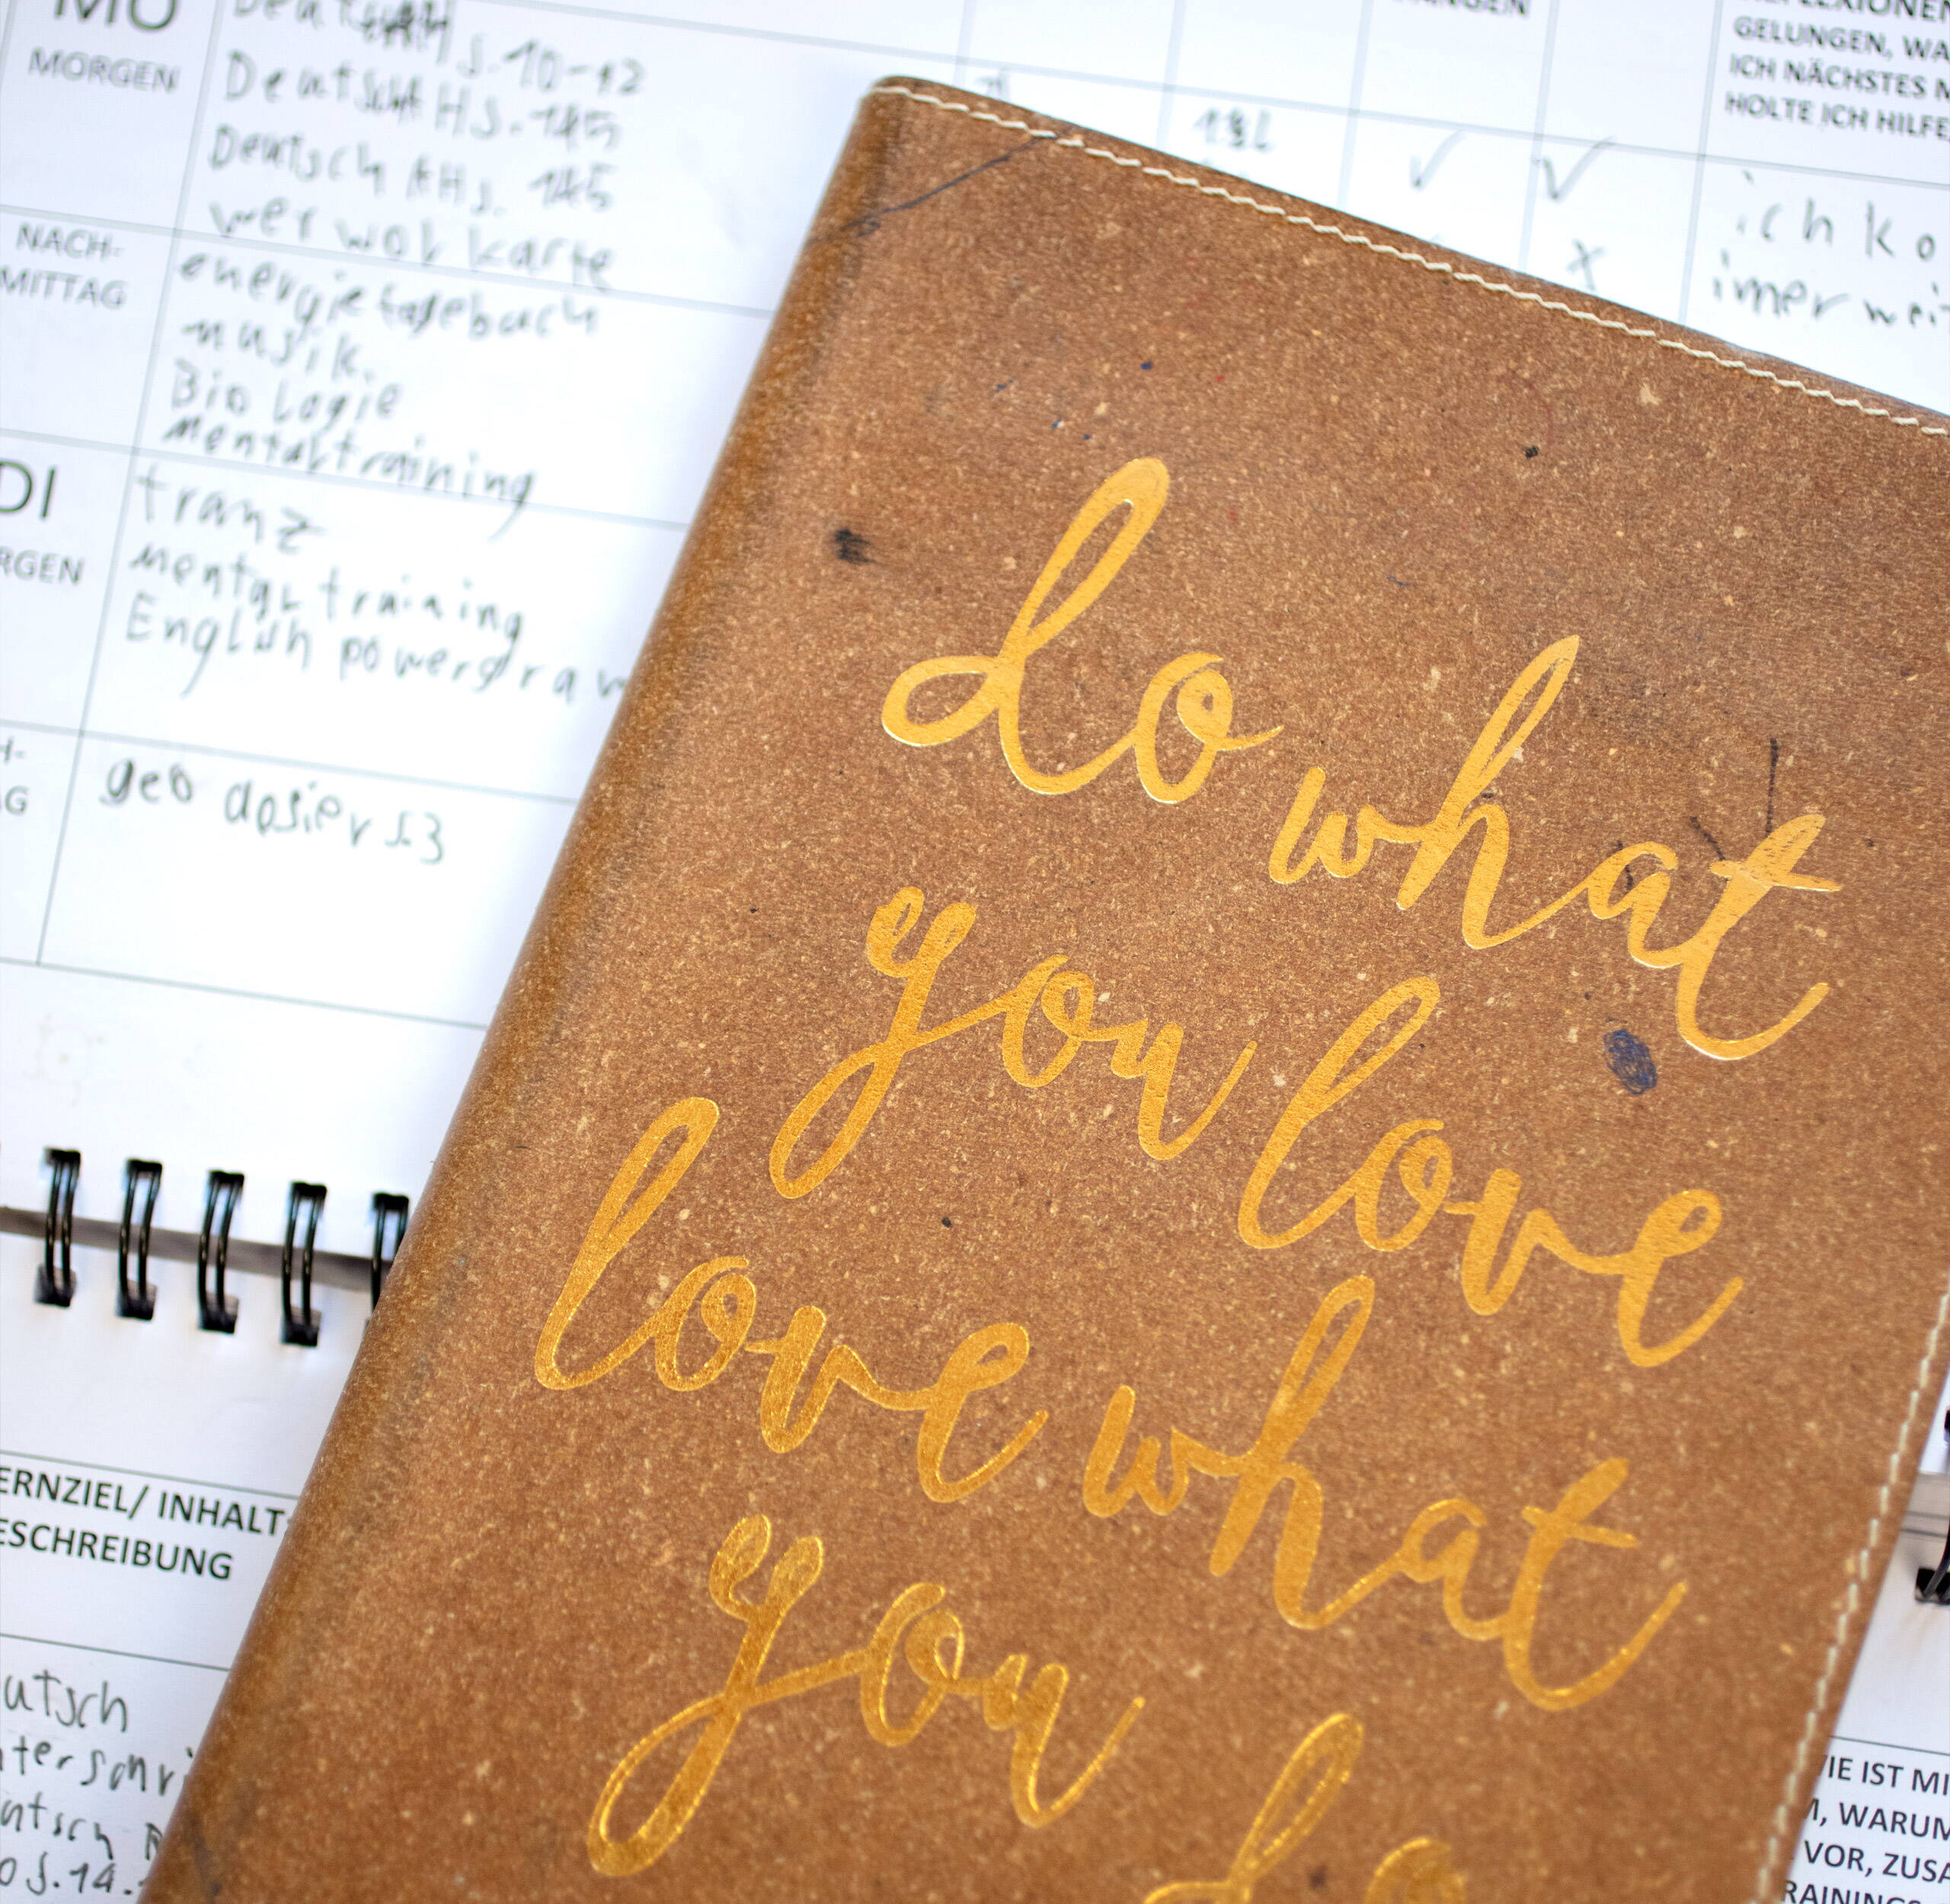 MO
MORGEN
S. 10-12
Deutsch AH S. 145
Deutsch AH S. 145
wer wol karte
NACH-
MITTAG
energietagebuch
musik.
Biologie
mentaltraining
DI
RGEN
franz
mental training
English powerdraw
H-
G
geo dosier S.3
NGEN
GELUNGEN, WA
ICH NÄCHSTES M
HOLTE ICH HILFE
ich ko
imer weit
do what
you love
love what
you do
ERNZIEL/ INHALT
ESCHREIBUNG
utsch
terschri
utsch
S. 14.
IE IST MI
M, WARUM
VOR, ZUSA
RAININGS